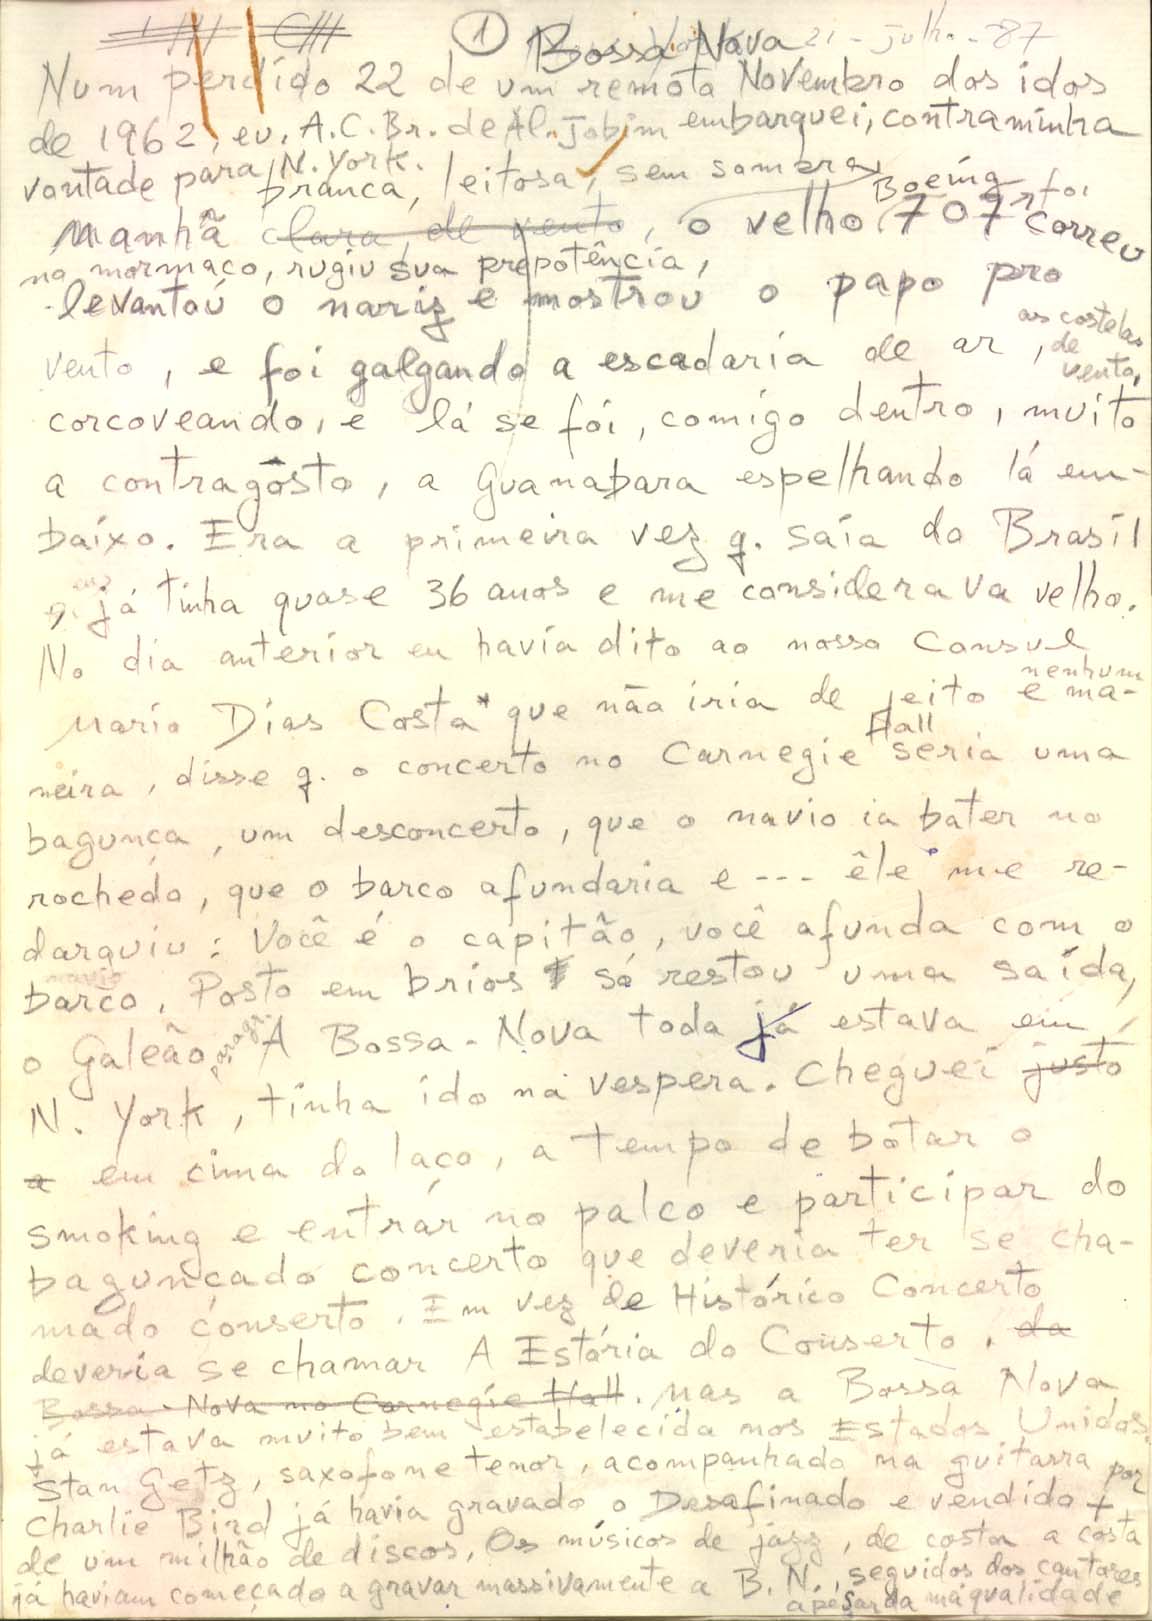 1 Bossa Nova 21 - julho - 87
Num perdido 22 de um remoto Novembro dos idos
de 1962, eu, A.C.Br. de Al. Jobim embarquei, contraminha
vontade para N. York.
branca, leitosa, sem sombra, Boeing foi
Manhã clara, de vento, o velho 707 correu
no mormaço, rugiu sua prepotência,
levantou o nariz e mostrou o papo pro
as costelas
vento, e foi galgando a escadaria de ar, de
vento,
corcoveando, e lá se foi, comigo dentro, muito
a contragôsto, a Guanabara espelhando lá em-
baixo. Era a primeira vez q. saía do Brasil
eu
já tinha quase 36 anos e me considerava velho.
No dia anterior eu havia dito ao nosso Consul
nenhum
Mario Dias Costa* que não iria de jeito e ma-
Hall
neira, disse q. o concerto no Carnegie seria uma
bagunça, um desconcerto, que o navio ia bater no
rochedo, que o barco afundaria e --- êle me re-
darquiu: Você é o capitão, você afunda com o
navio
barco. Posto em brios só restou uma saída,
o Galeão. paragr. A Bossa-Nova toda já estava em
N. York, tinha ido na vespera. Cheguei justo
a em cima do laço, a tempo de botar o
smoking e entrar no palco e participar do
bagunçado concerto que deveria ter se cha-
mado conserto. Em vez de Histórico Concerto
deveria se chamar A Estória do Conserto. da
Bossa-Nova no Carnegie Hall. Mas a Bossa Nova
já estava muito bem estabelecida nos Estados Unidos.
Stan Getz, saxofone tenor, acompanhado na guitarra por
Charlie Bird já havia gravado o Desafinado e vendido +
de um milhão de discos. Os músicos de jazz, de costa a costa
já haviam começado a gravar massivamente a B. N., seguidos dos cantores
apesar da má qualidade